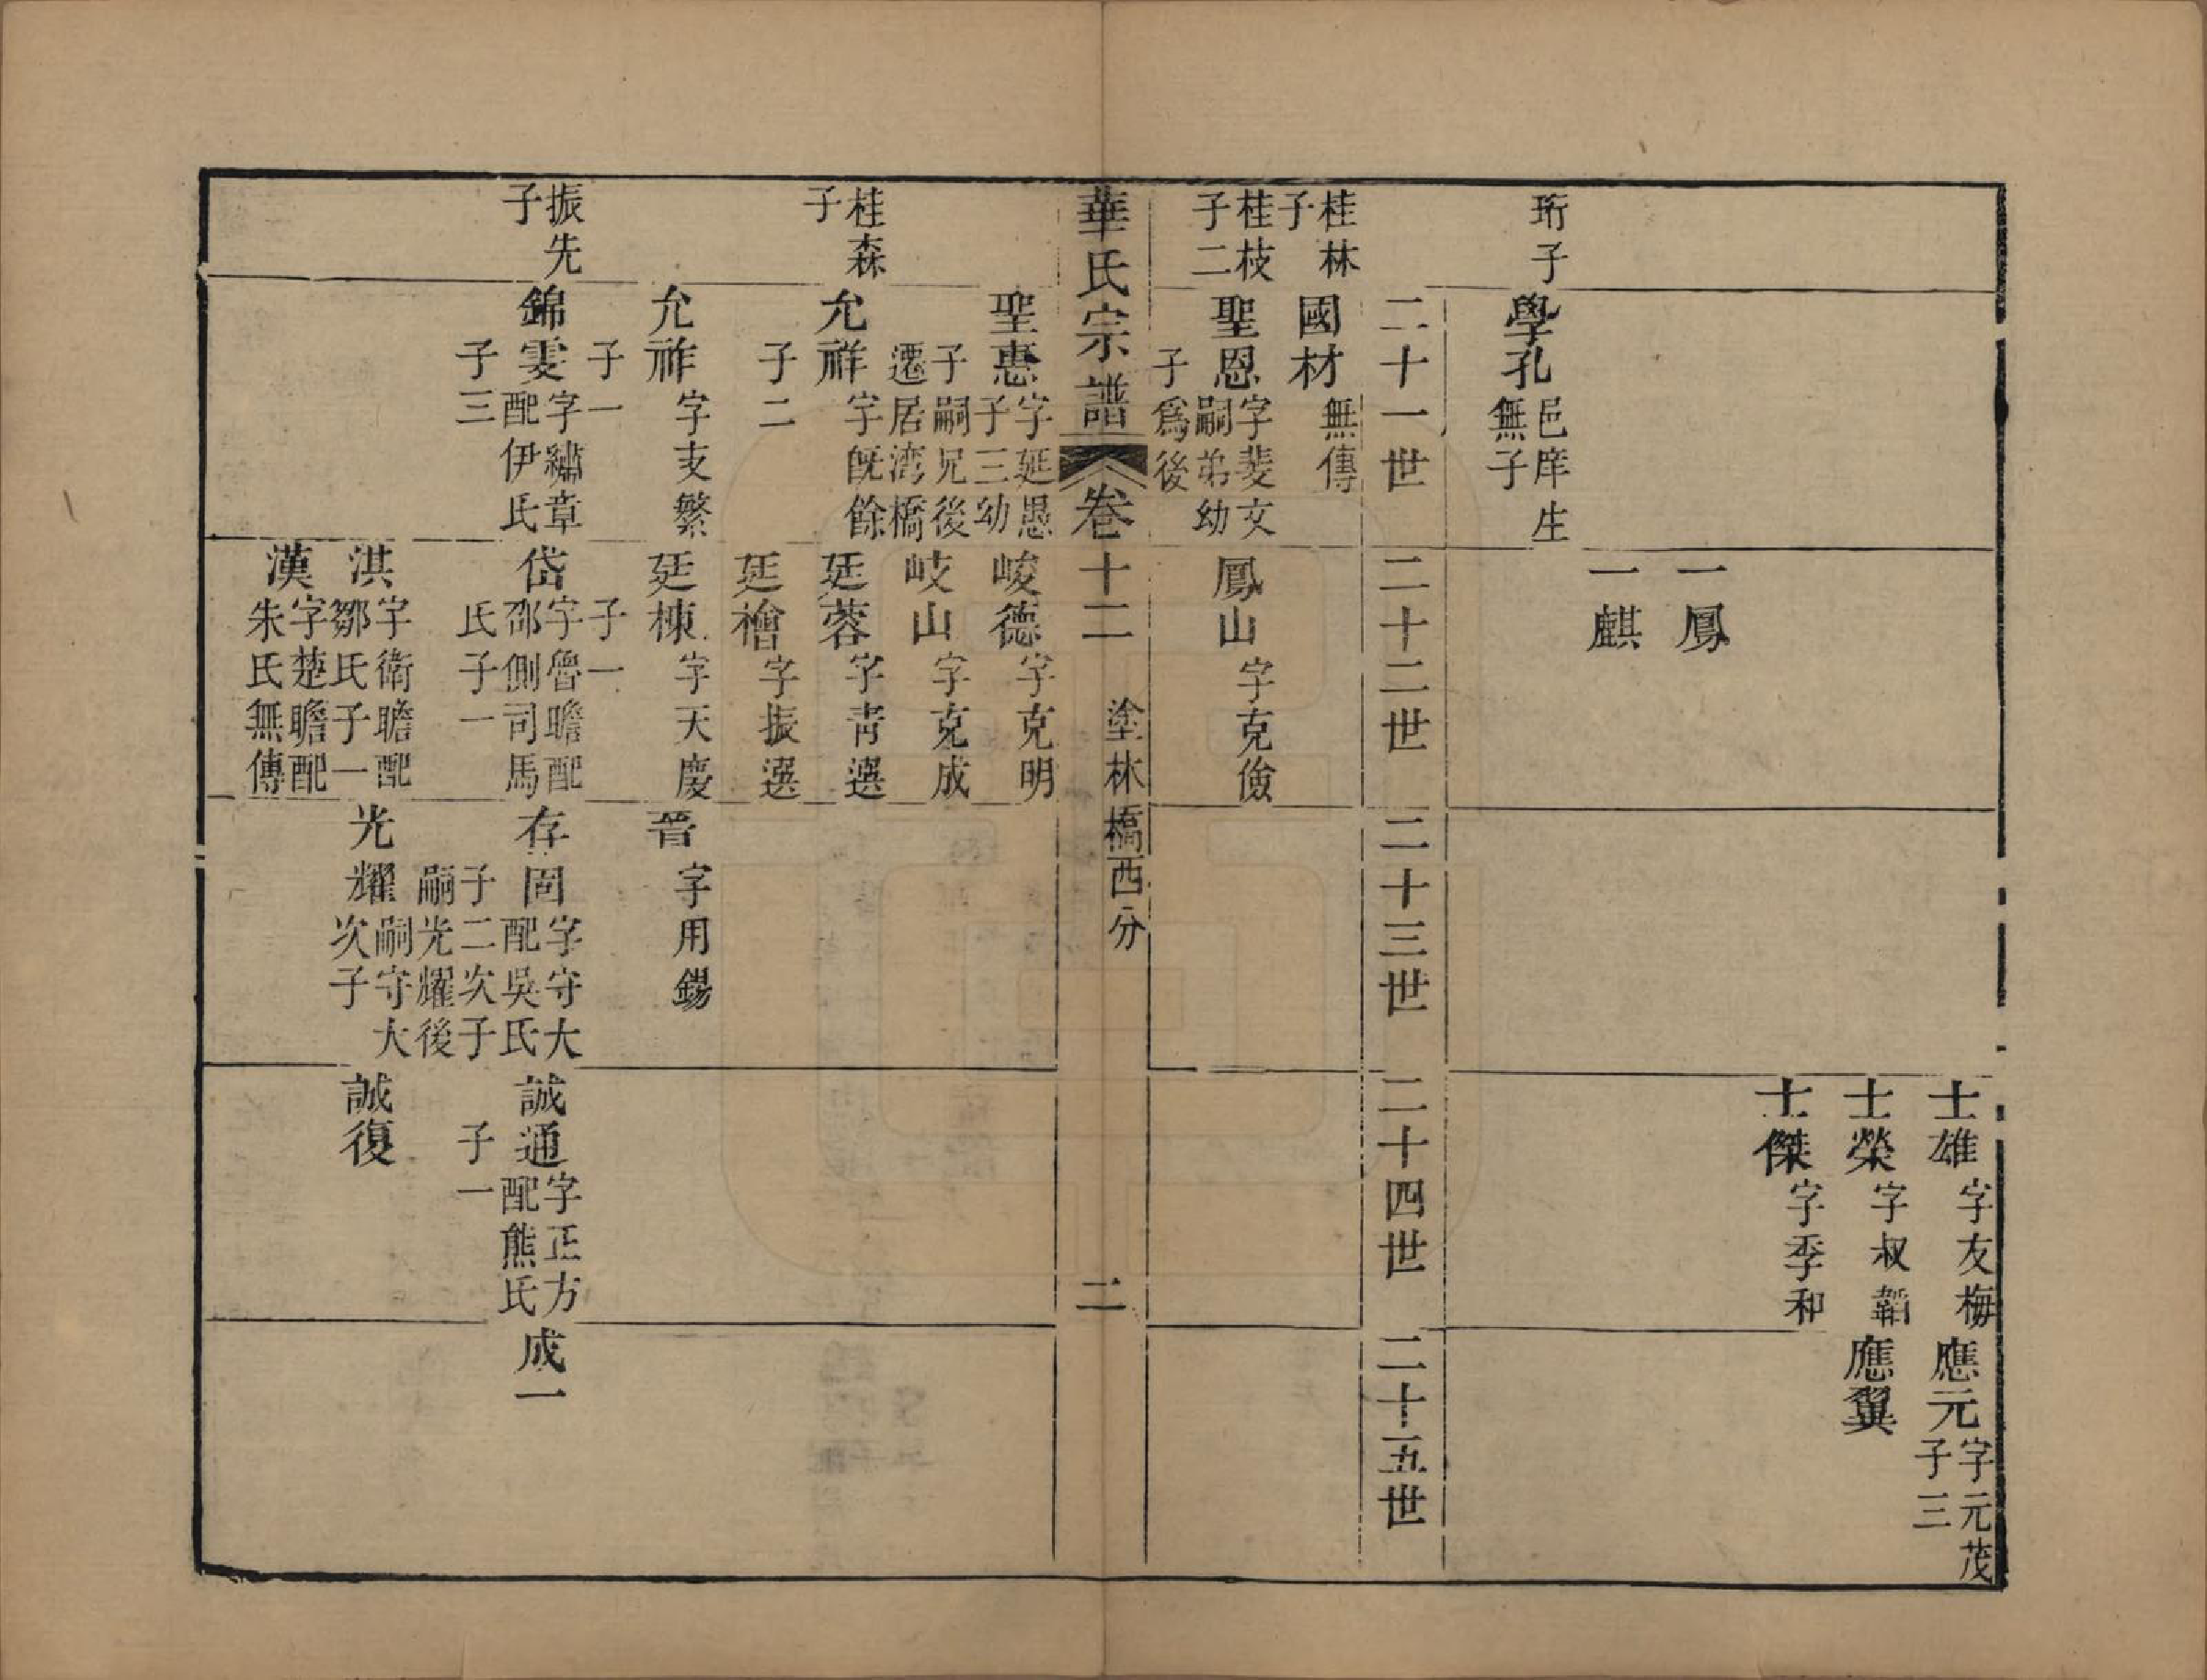 士雄 字友梅
應元 字元茂
子三
士榮 字叔韜
應翼
士傑 字季和
一鳳
一麒
珩子
學孔 邑庠生
無子
二十一世
二十二世
二十三世
二十四世
二十五世
桂林
子
國材 無傳
桂枝
子二
聖恩 字斐文
嗣弟幼
子爲後
鳳山 字克儉
華氏宗譜 卷十二 塗林橋西分 二
聖惠 字延愚
子三幼
子嗣兄後
遷居湾橋
峻德 字克明
岐山 字克成
桂森
子
允祥 字旣餘
子二
廷蓉 字靑選
廷檜 字振選
允祚 字支繁
子一
廷棟 字天慶
子一
晉 字用錫
振先
子
錦雯 字繡章
配伊氏
子三
岱 字魯瞻配
邵側司馬
氏子一
存固 字守大
配吳氏
子二次子
嗣光耀後
誠通 字正方
配熊氏
子一
成一
淇 字衛瞻配
鄒氏子一
光耀 嗣守大
次子
誠復
漢 字楚瞻配
朱氏無傳